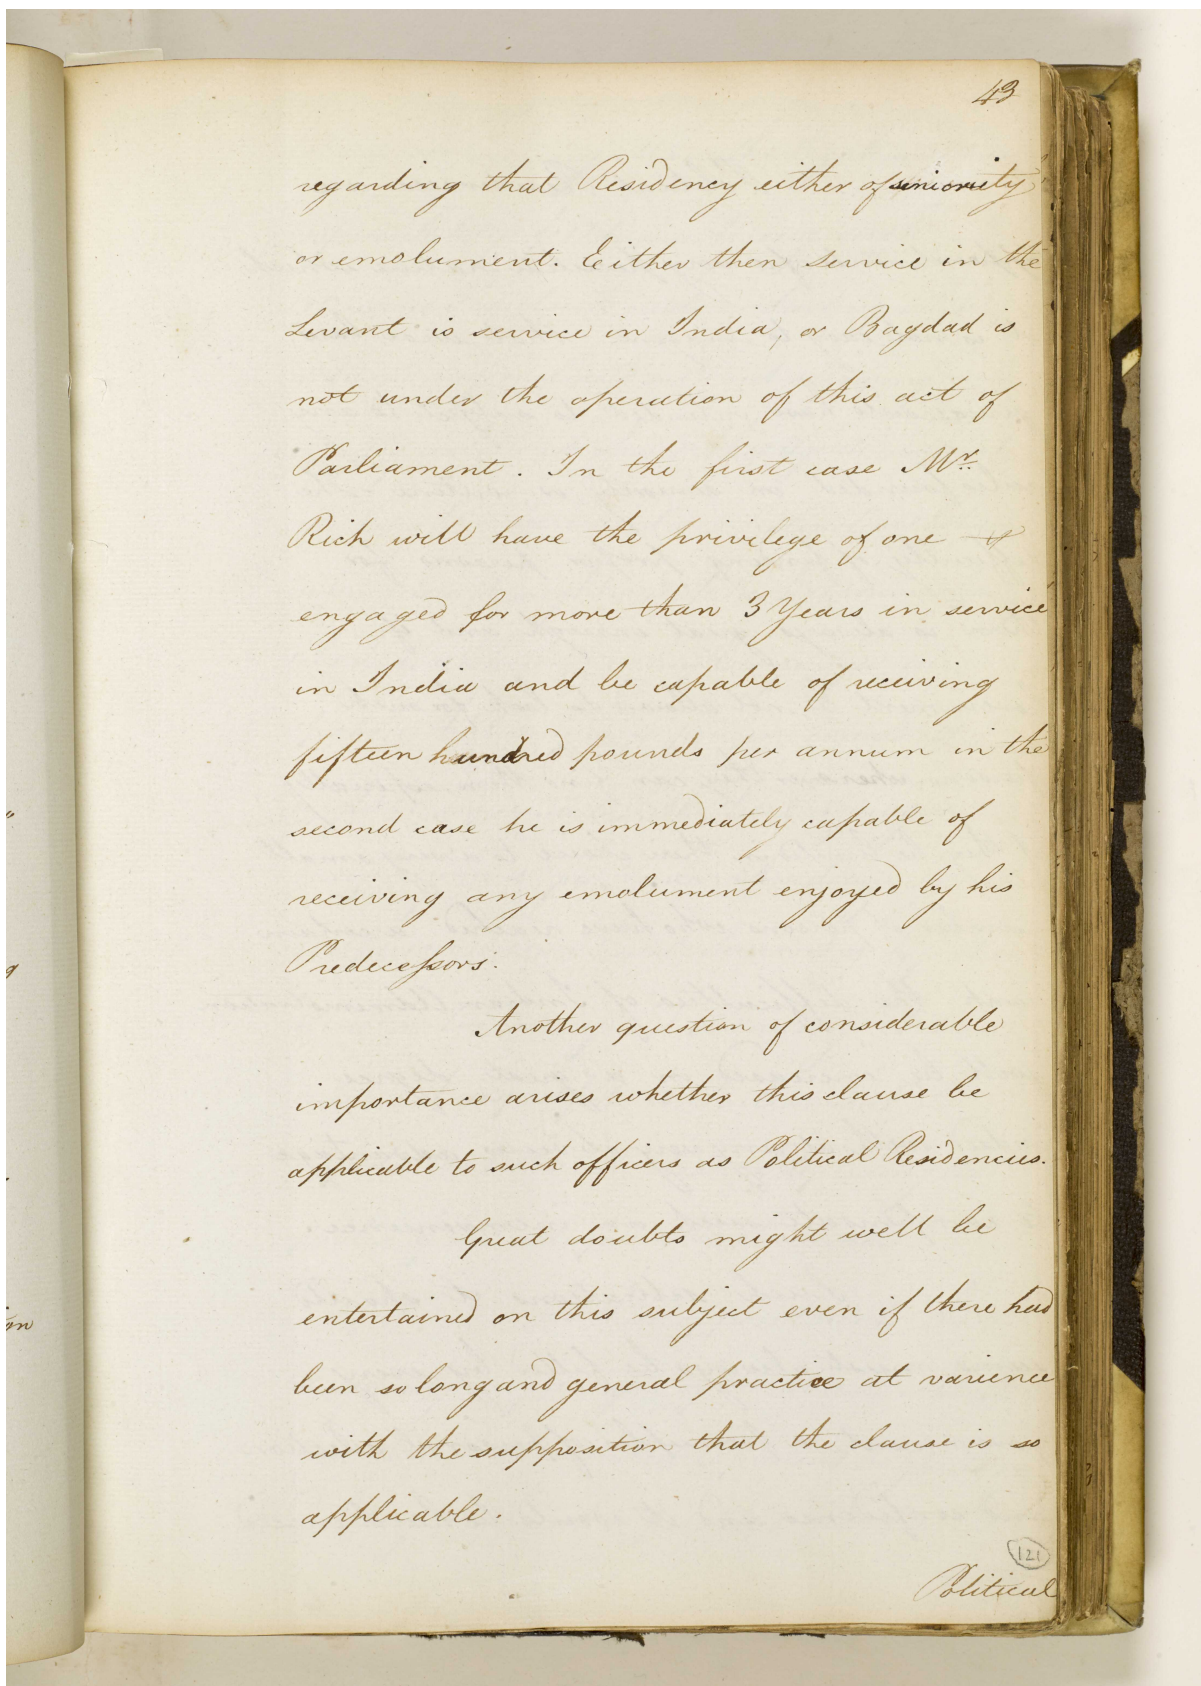 43
regarding that Residency either of seniority
or emolument. Either then service in the
Levant is service in India, or Bagdad is
not under the operation of this act of
Parliament. In the first case Mr.
Rich will have the privilege of one
engaged for more than 3 Years in service
in India and be capable of receiving
fifteen hundred pounds per annum in the
second case he is immediately capable of
receiving any emolument enjoyed by his
Predecessors.
Another question of considerable
importance arises whether this clause be
applicable to such officers as Political Residencies.
Great doubts might well be
entertained on this subject even if there had
been so long and general practice at varience
with the supposition that the clause is so
applicable.
121
Political